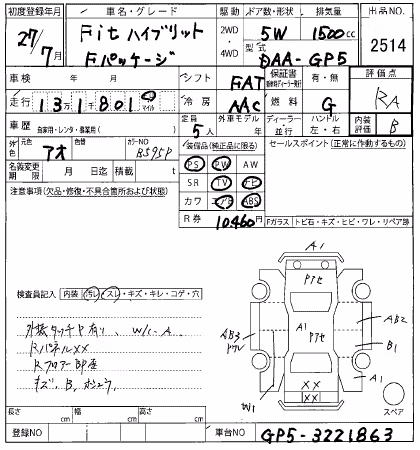 初度登録年月 車名・グレード 駆動 ドア数・形状 排気量 出品NO.
27/7月 Fit ハイブリット Fパッケージ 2WD ・ 4WD 5W 1500cc 2514
型式 DAA-GP5
車検 年 月 シフト FAT 保証書 有・無 評価点
走行 13万1千801 マイル 冷房 AAC 燃料 G RA
車歴 自家用・レンタ・事業用( ) 定員 5人 外車モデル 年 ディーラー・並行 ハンドル 左・右 内装評価 B
外色 元色 アオ 色替 カラーNO B595P 装備品(純正品に限る) セールスポイント(正常に作動するもの)
名義変更期限 月 日迄 積載 t PS PW AW
注意事項(欠品・修復・不具合箇所および状態) SR TV ナビ
カワ エアB ABS
R券 10460円 Fガラス トビ石・キズ・ヒビ・ワレ・リペア跡
検査員記入 内装 汚レ・スレ・キズ・キレ・コゲ・穴
外装タッチP有り、W/C-A
RパネルXX
Rフロアー
キズ、B、
A1
Pアセ
A1
Pアセ
AB3
AB2
B1
XX
XX
A1
W1
スペア
長さ cm 幅 cm 高さ cm
登録NO 車台NO GP5-3221863